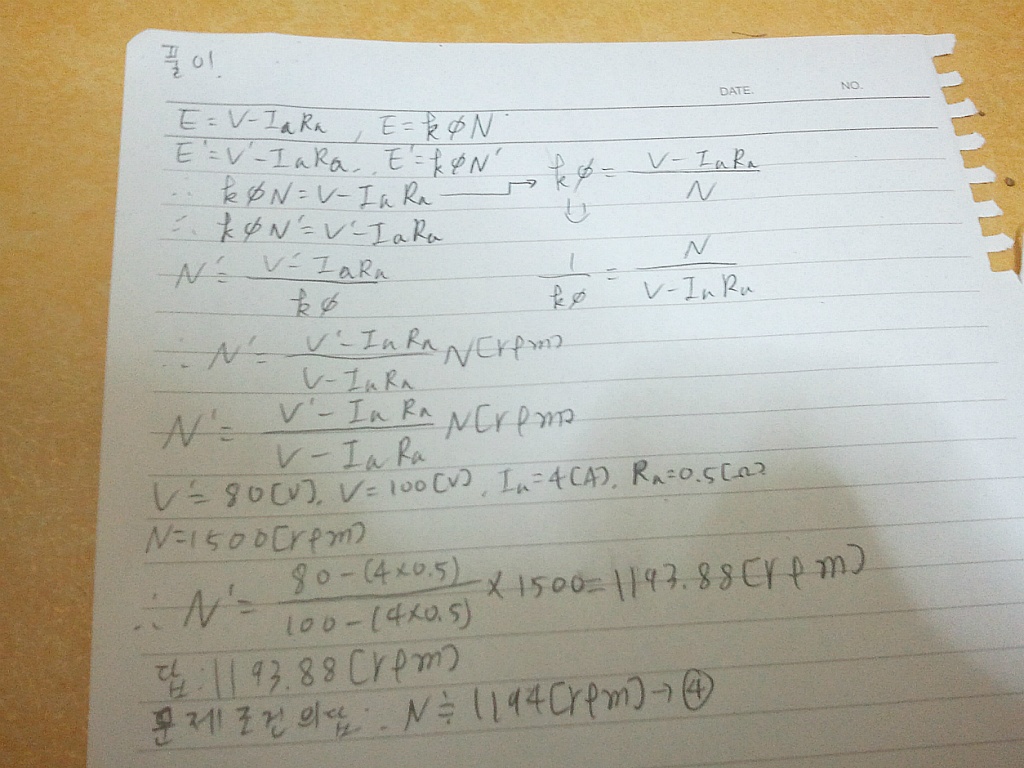 풀이.
DATE. NO.
E = V - IaRa , E = køN
E' = V' - IaRa. , E' = køN'
∴ køN = V - IaRa → kø = (V - IaRa)/N
∴ køN' = V' - IaRa ⇓
N' = (V' - IaRa)/kø 1/kø = N/(V - IaRa)
∴ N' = (V' - IaRa)/(V - IaRa) N[rpm]
N' = (V' - IaRa)/(V - IaRa) N[rpm]
V' = 80[V], V = 100[V], Ia = 4[A], Ra = 0.5[Ω]
N = 1500[rpm]
∴ N' = (80 - (4×0.5))/(100 - (4×0.5)) × 1500 = 1193.88[rpm]
답 : 1193.88[rpm]
문제조건의답 : N ≑ 1194[rpm] → ④